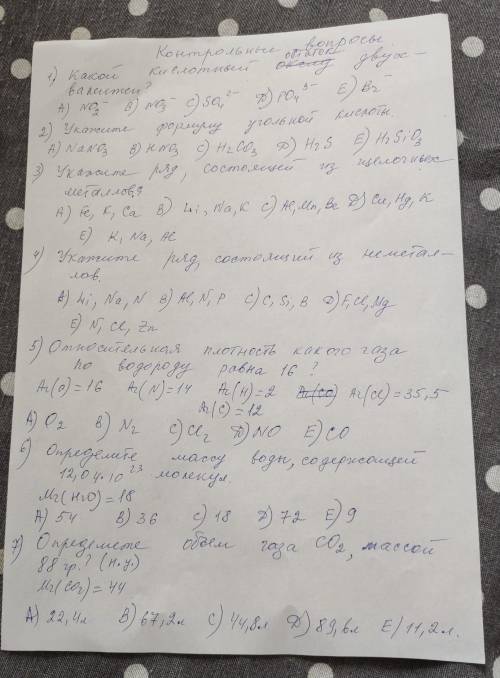 Контрольные вопросы
1) Какой кислотный остаток ~~оксид~~ двух-
валентен?
А) NO₂⁻ В) NO₃⁻ С) SO₄²⁻ Д) PO₄³⁻ Е) Br⁻
2) Укажите формулу угольной кислоты.
А) NaNO₃ В) HNO₃ С) H₂CO₃ Д) H₂S Е) H₂SiO₃
3) Укажите ряд, состоящей из щелочных
металлов?
А) Fe, K, Ca В) Li, Na, K С) Al, Mn, Be Д) Cu, Hg, K
Е) K, Na, Al
4) Укажите ряд, состоящий из неметал-
лов.
А) Li, Na, N В) Al, N, P С) C, Si, B Д) F, Cl, Mg
Е) N, Cl, Zn
5) Относительная плотность какого газа
по водороду равна 16?
Ar(O)=16 Ar(N)=14 Ar(H)=2 ~~Ar(CO)~~ Ar(Cl)=35,5
Ar(C)=12
А) O₂ В) N₂ С) Cl₂ Д) NO Е) CO
6) Определите массу воды, содержащей
12,04·10²³ молекул.
Mr(H₂O)=18
А) 54 В) 36 С) 18 Д) 72 Е) 9
7) Определите объем газа CO₂, массой
88 гр.? (н.у.)
Mr(CO₂)=44
А) 22,4л В) 67,2л С) 44,8л Д) 89,6л Е) 11,2л.